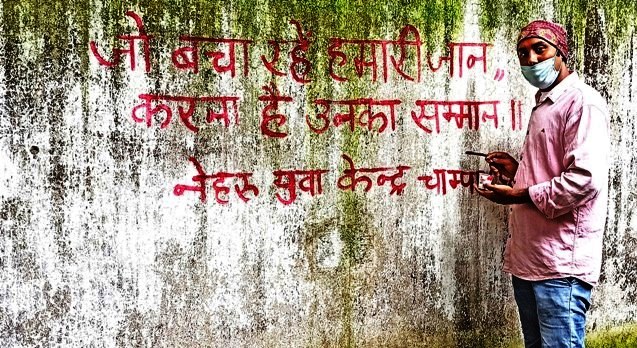 जो बचा रहे हमारी जान,,
करना है उनका सम्मान॥
नेहरू युवा केन्द्र चाम्पा